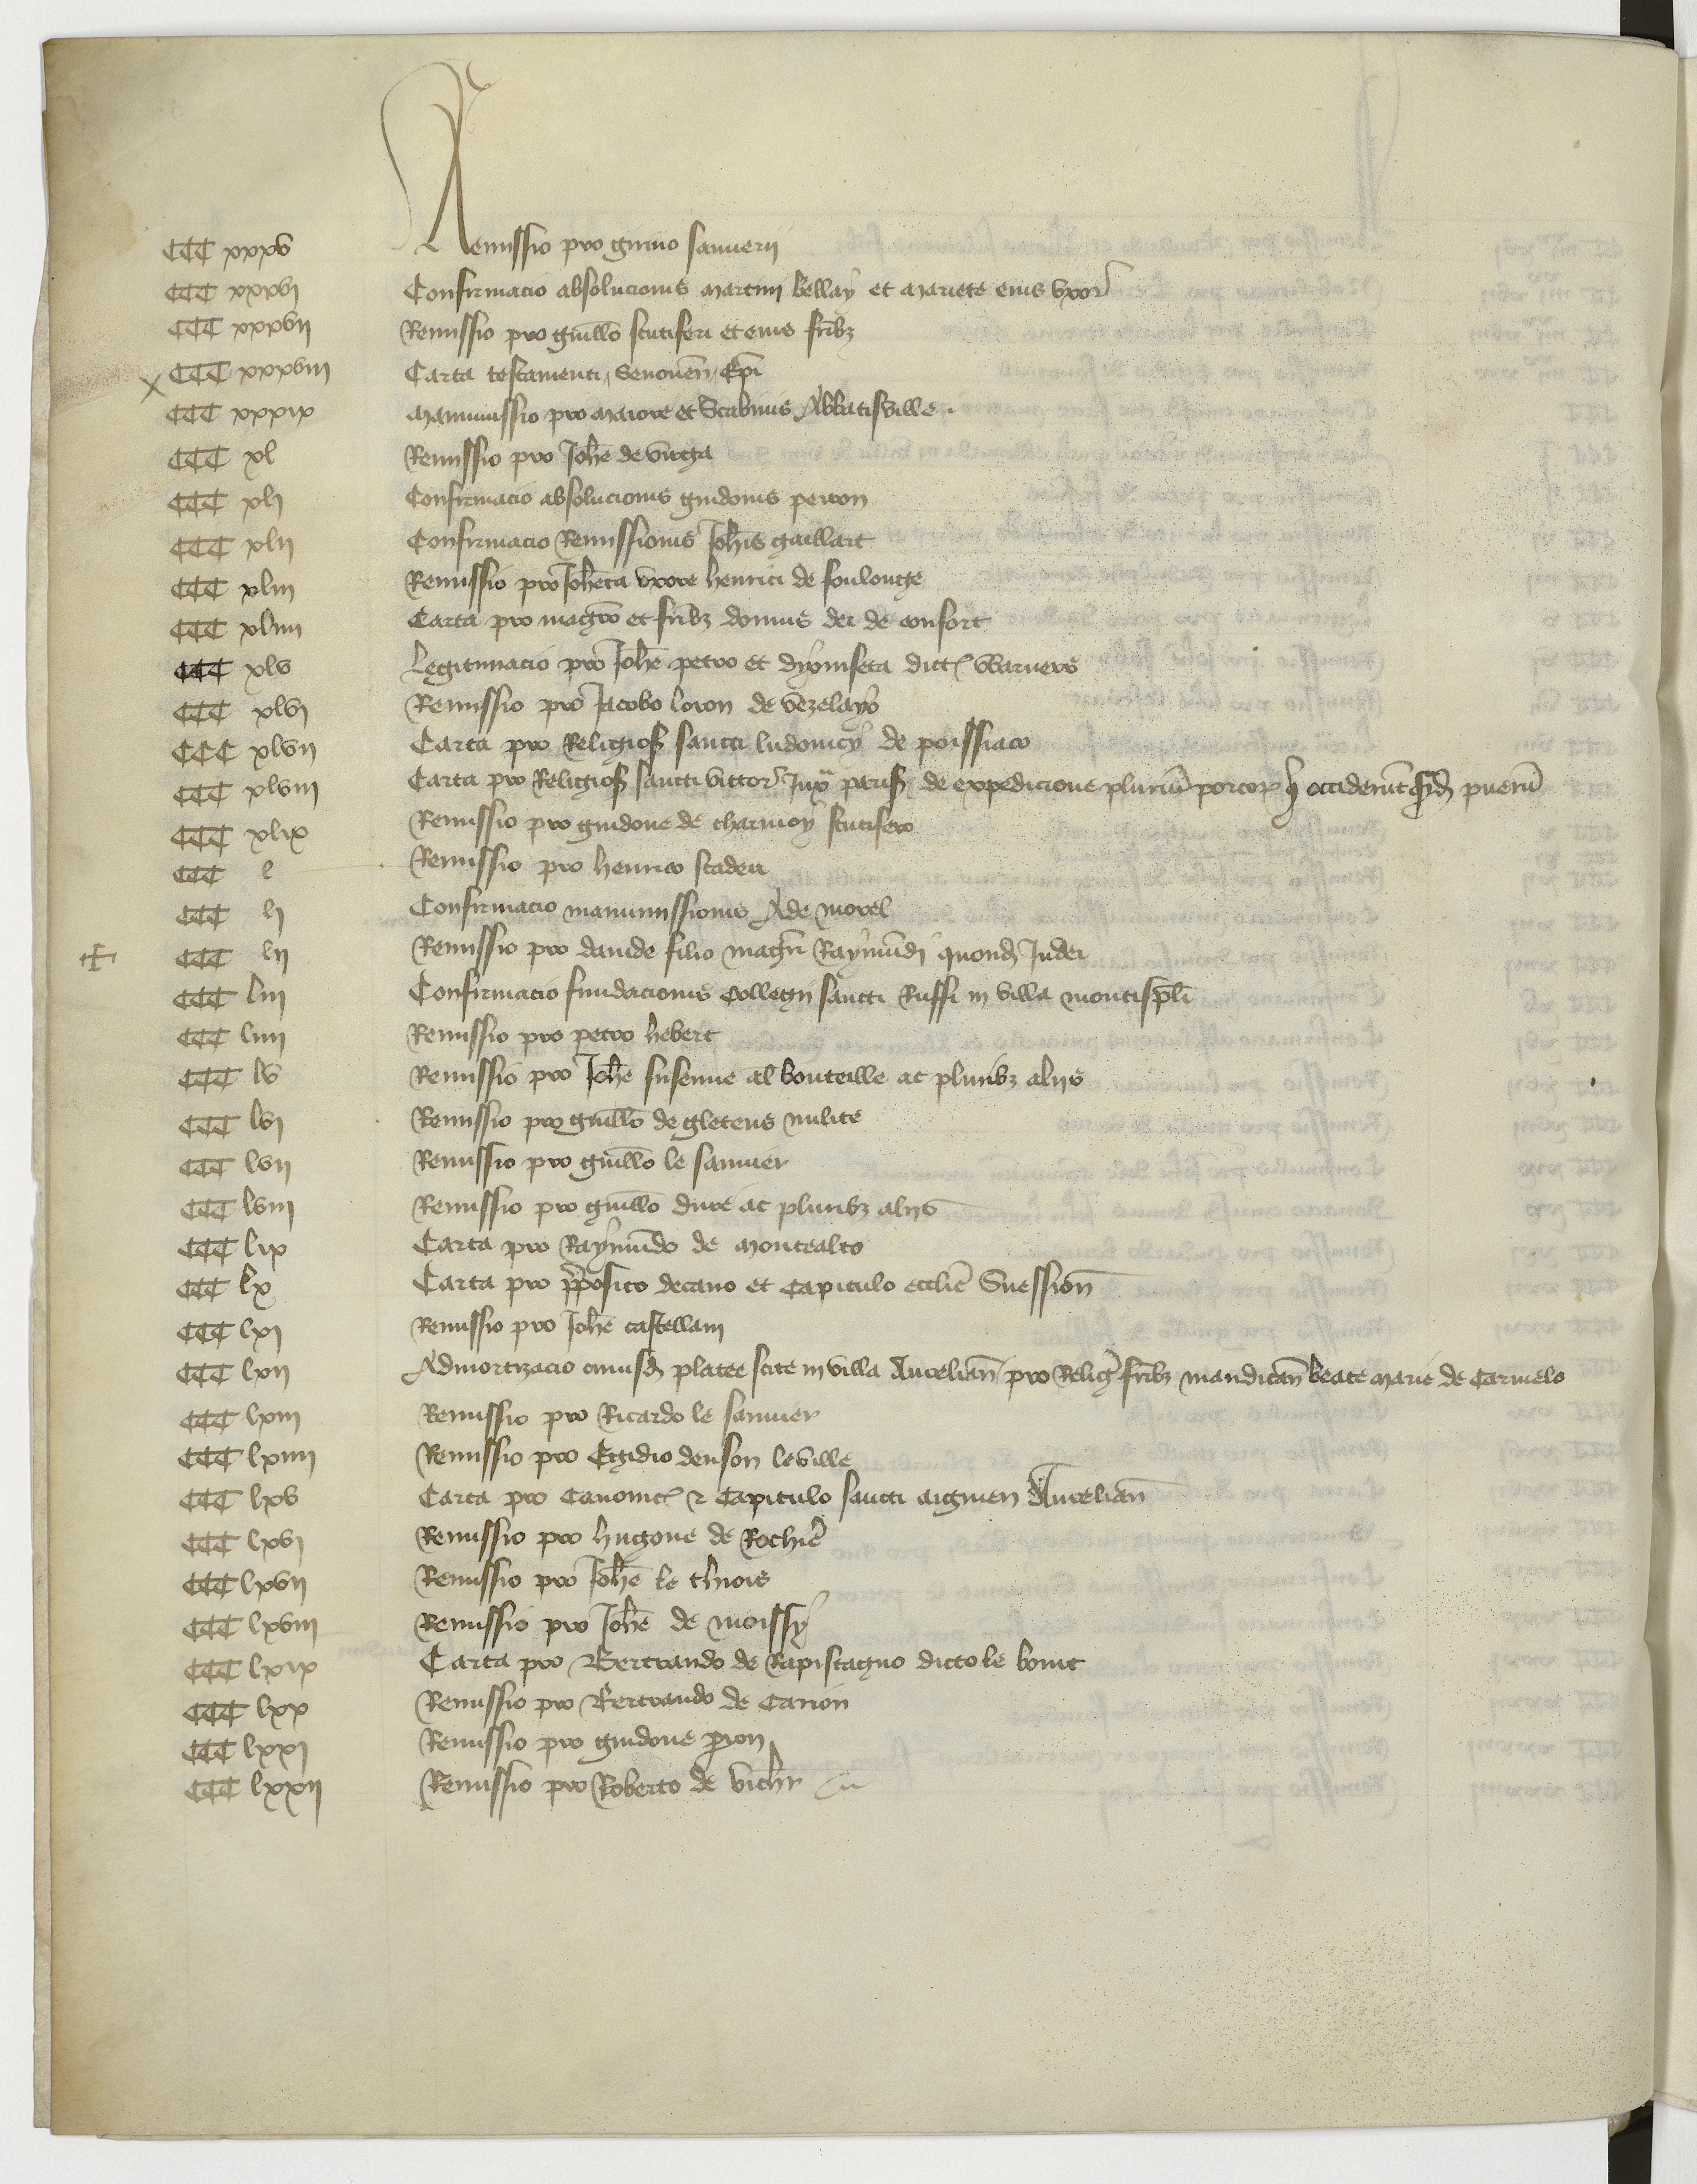 CCC xxxv Remissio pro guino sannerii
CCC xxxvj Confirmacio absolucionis Martini bellay et Mariete eius uxor
CCC xxxvij Remissio pro guillo scutiferi et eius fribz
x CCC xxxviij Carta testamenti Senonen Epi
CCC xxxix Manumissio pro Maiore et Scabinis Abbatisville
CCC xl Remissio pro Johe de virga
CCC xlj Confirmacio absolucionis guidonis
CCC xlij Confirmacio Remissionis Johis gaillart
CCC xliij Remissio pro Joheta uxore henrici de soulonge
CCC xliiij Carta pro magro et fribz domus dei de confort
CCC xlv Legitimacio pro Johe petro et dyoniseta dict Warners
CCC xlvj Remissio pro Jacobo loron de vezelayo
CCC xlvij Carta pro Religios sancti ludovicy de poissiaco
CCC xlviij Carta pro Religios sancti victor Jux paris de expedicione plurium porcor q occiderut quend pueru
CCC xlix Remissio pro guidone de charmoy scutifero
CCC l Remissio pro henrico
CCC lj Confirmacio manumissionis Ade morel
+ CCC lij Remissio pro davide filio magri Raymundi quond Judei
CCC liij Confirmacio fundacionis Collegii sancti Ruffi in villa montispli
CCC liiij Remissio pro petro hebert
CCC lv Remissio pro Johe susenne al bouteille ac pluribz aliis
CCC lvj Remissio pro guillo de gletens milite
CCC lvij Remissio pro guillo le sannier
CCC lviij Remissio pro guillo dure ac pluribz aliis
CCC lix Carta pro Raymundo de Montealto
CCC lx Carta pro pposito decano et Capitulo ecclie Suession
CCC lxj Remissio pro Johe castellain
CCC lxij Admortizacio cuiusd platee scite in villa Aurelian pro Relig fribz mandican beate Marie de Carmelo
CCC lxiij Remissio pro Ricardo le sannier
CCC lxiiij Remissio pro Egidio denson leville
CCC lxv Carta pro Canonic et Capitulo sancti aignien Aurelian
CCC lxvj Remissio pro hugone de Rochie
CCC lxvij Remissio pro Johe le thiois
CCC lxviij Remissio pro Johe de moissy
CCC lxix Carta pro Bertrando de Rapistagno dicto le
CCC lxx Remissio pro Bertrando de Carion
CCC lxxj Remissio pro guidone pion
CCC lxxij Remissio pro Roberto de vichi